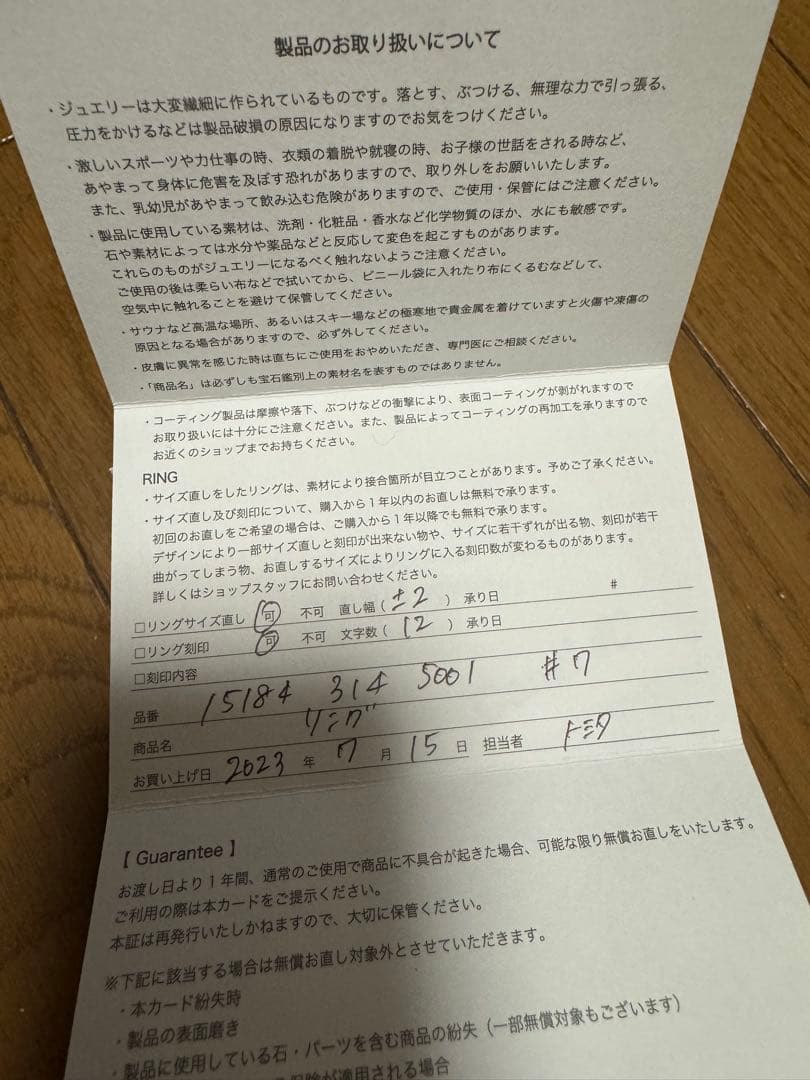 製品のお取り扱いについて
・ジュエリーは大変繊細に作られているものです。落とす、ぶつける、無理な力で引っ張る、
圧力をかけるなどは製品破損の原因になりますのでお気をつけください。
・激しいスポーツや力仕事の時、衣類の着脱や就寝の時、お子様の世話をされる時など、
あやまって身体に危害を及ぼす恐れがありますので、取り外しをお願いいたします。
また、乳幼児があやまって飲み込む危険がありますので、ご使用・保管にはご注意ください。
・製品に使用している素材は、洗剤・化粧品・香水など化学物質のほか、水にも敏感です。
石や素材によっては水分や薬品などと反応して変色を起こすものがあります。
これらのものがジュエリーになるべく触れないようご注意ください。
ご使用の後は柔らい布などで拭いてから、ビニール袋に入れたり布にくるむなどして、
空気中に触れることを避けて保管してください。
・サウナなど高温な場所、あるいはスキー場などの極寒地で貴金属を着けていますと火傷や凍傷の
原因となる場合がありますので、必ず外してください。
・皮膚に異常を感じた時は直ちにご使用をおやめいただき、専門医にご相談ください。
・「商品名」は必ずしも宝石鑑別上の素材名を表すものではありません。
・コーティング製品は摩擦や落下、ぶつけなどの衝撃により、表面コーティングが剥がれますので
お取り扱いには十分にご注意ください。また、製品によってコーティングの再加工を承りますので
お近くのショップまでお持ちください。
RING
・サイズ直しをしたリングは、素材により接合箇所が目立つことがあります。予めご了承ください。
・サイズ直し及び刻印について、購入から1年以内のお直しは無料で承ります。
初回のお直しをご希望の場合は、ご購入から1年以降でも無料で承ります。
デザインにより一部サイズ直しと刻印が出来ない物や、サイズに若干ずれが出る物、刻印が若干
曲がってしまう物、お直しするサイズによりリングに入る刻印数が変わるものがあります。
詳しくはショップスタッフにお問い合わせください。
□リングサイズ直し 可 不可 直し幅 ( ±2 ) 承り日 #
□リング刻印 可 不可 文字数 ( 12 ) 承り日
□刻印内容
品番 15184 314 5001 #7
商品名 リング
お買い上げ日 2023 年 7 月 15 日 担当者 トミタ
【 Guarantee 】
お渡し日より1年間、通常のご使用で商品に不具合が起きた場合、可能な限り無償お直しをいたします。
ご利用の際は本カードをご提示ください。
本証は再発行いたしかねますので、大切に保管ください。
※下記に該当する場合は無償お直し対象外とさせていただきます。
・本カード紛失時
・製品の表面磨き
・製品に使用している石・パーツを含む商品の紛失（一部無償対象もございます）
保険が適用される場合